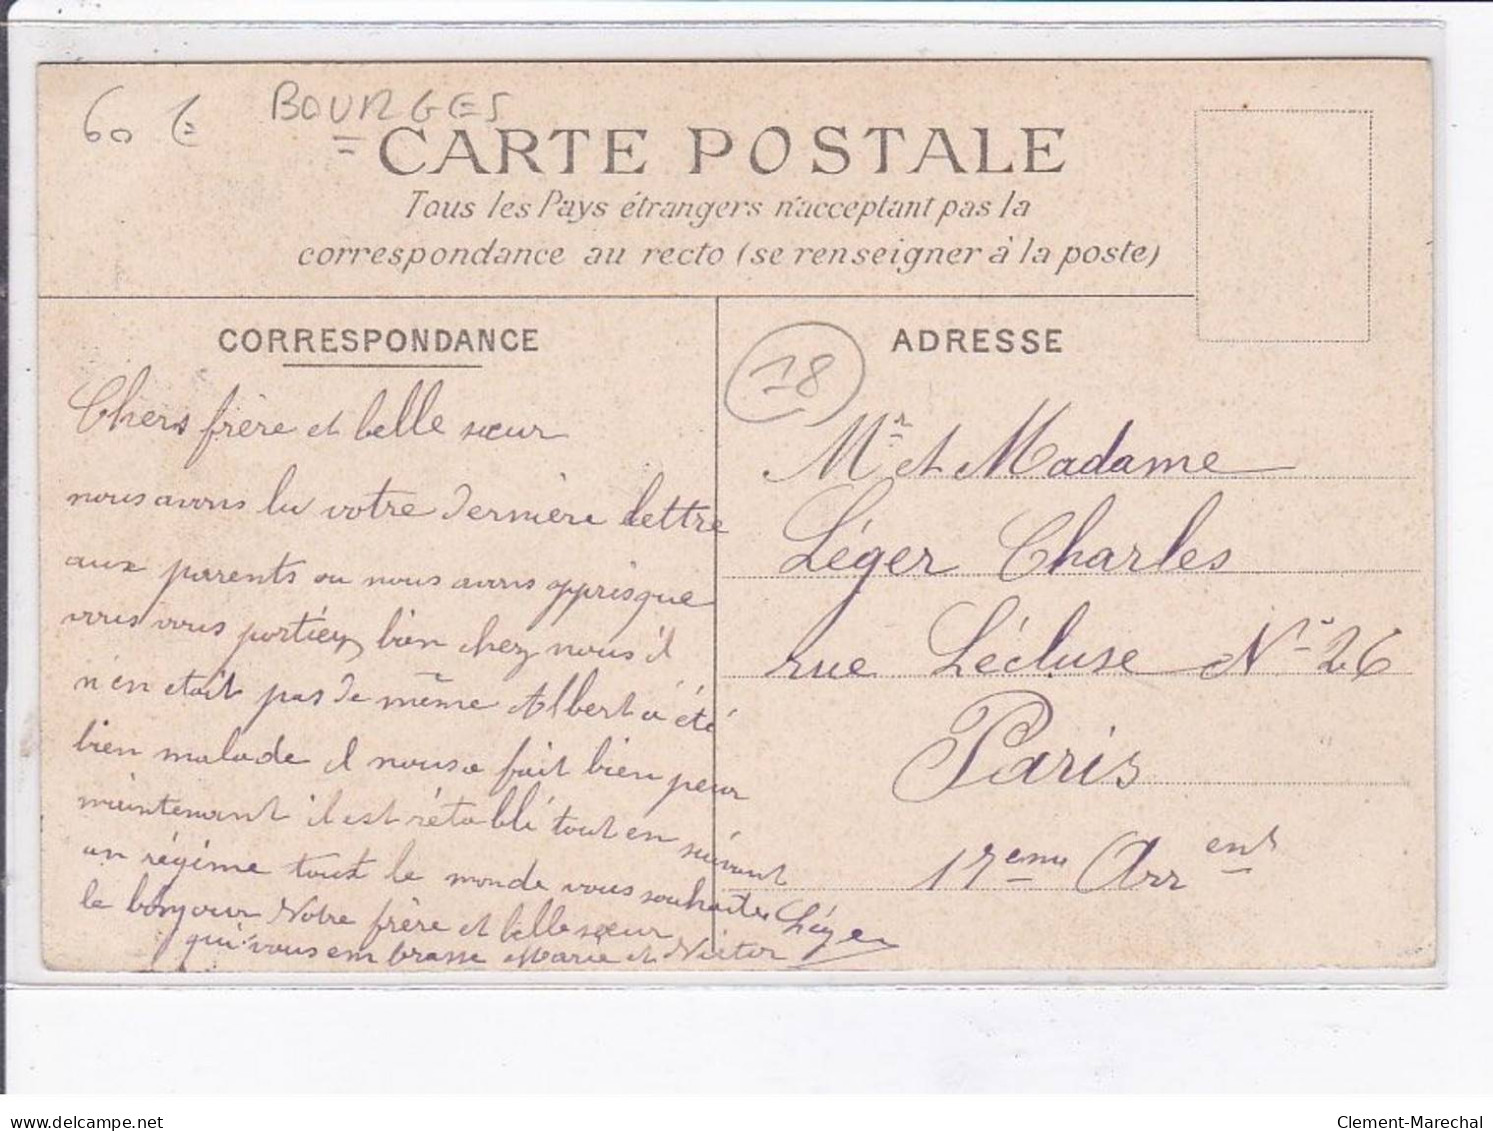 60 €
BOURGES
CARTE POSTALE
Tous les Pays étrangers n'acceptant pas la
correspondance au recto (se renseigner à la poste)
CORRESPONDANCE
Chers frère et belle sœur
nous avons lu votre dernière lettre
aux parents ou nous avons appris que
vous vous portiez bien chez nous il
n'en etait pas de même Albert a été
bien malade il nous a fait bien peur
maintenant il est rétabli tout en suivant
un régime tout le monde vous souhaite
le bonjour Notre frère et belle sœur
qui vous embrasse Marie et Victor Léger
18
ADRESSE
Mr et Madame
Léger Charles
rue Lécluse No 26
Paris
17eme Arrent
delcampe.net
Clement-Marechal